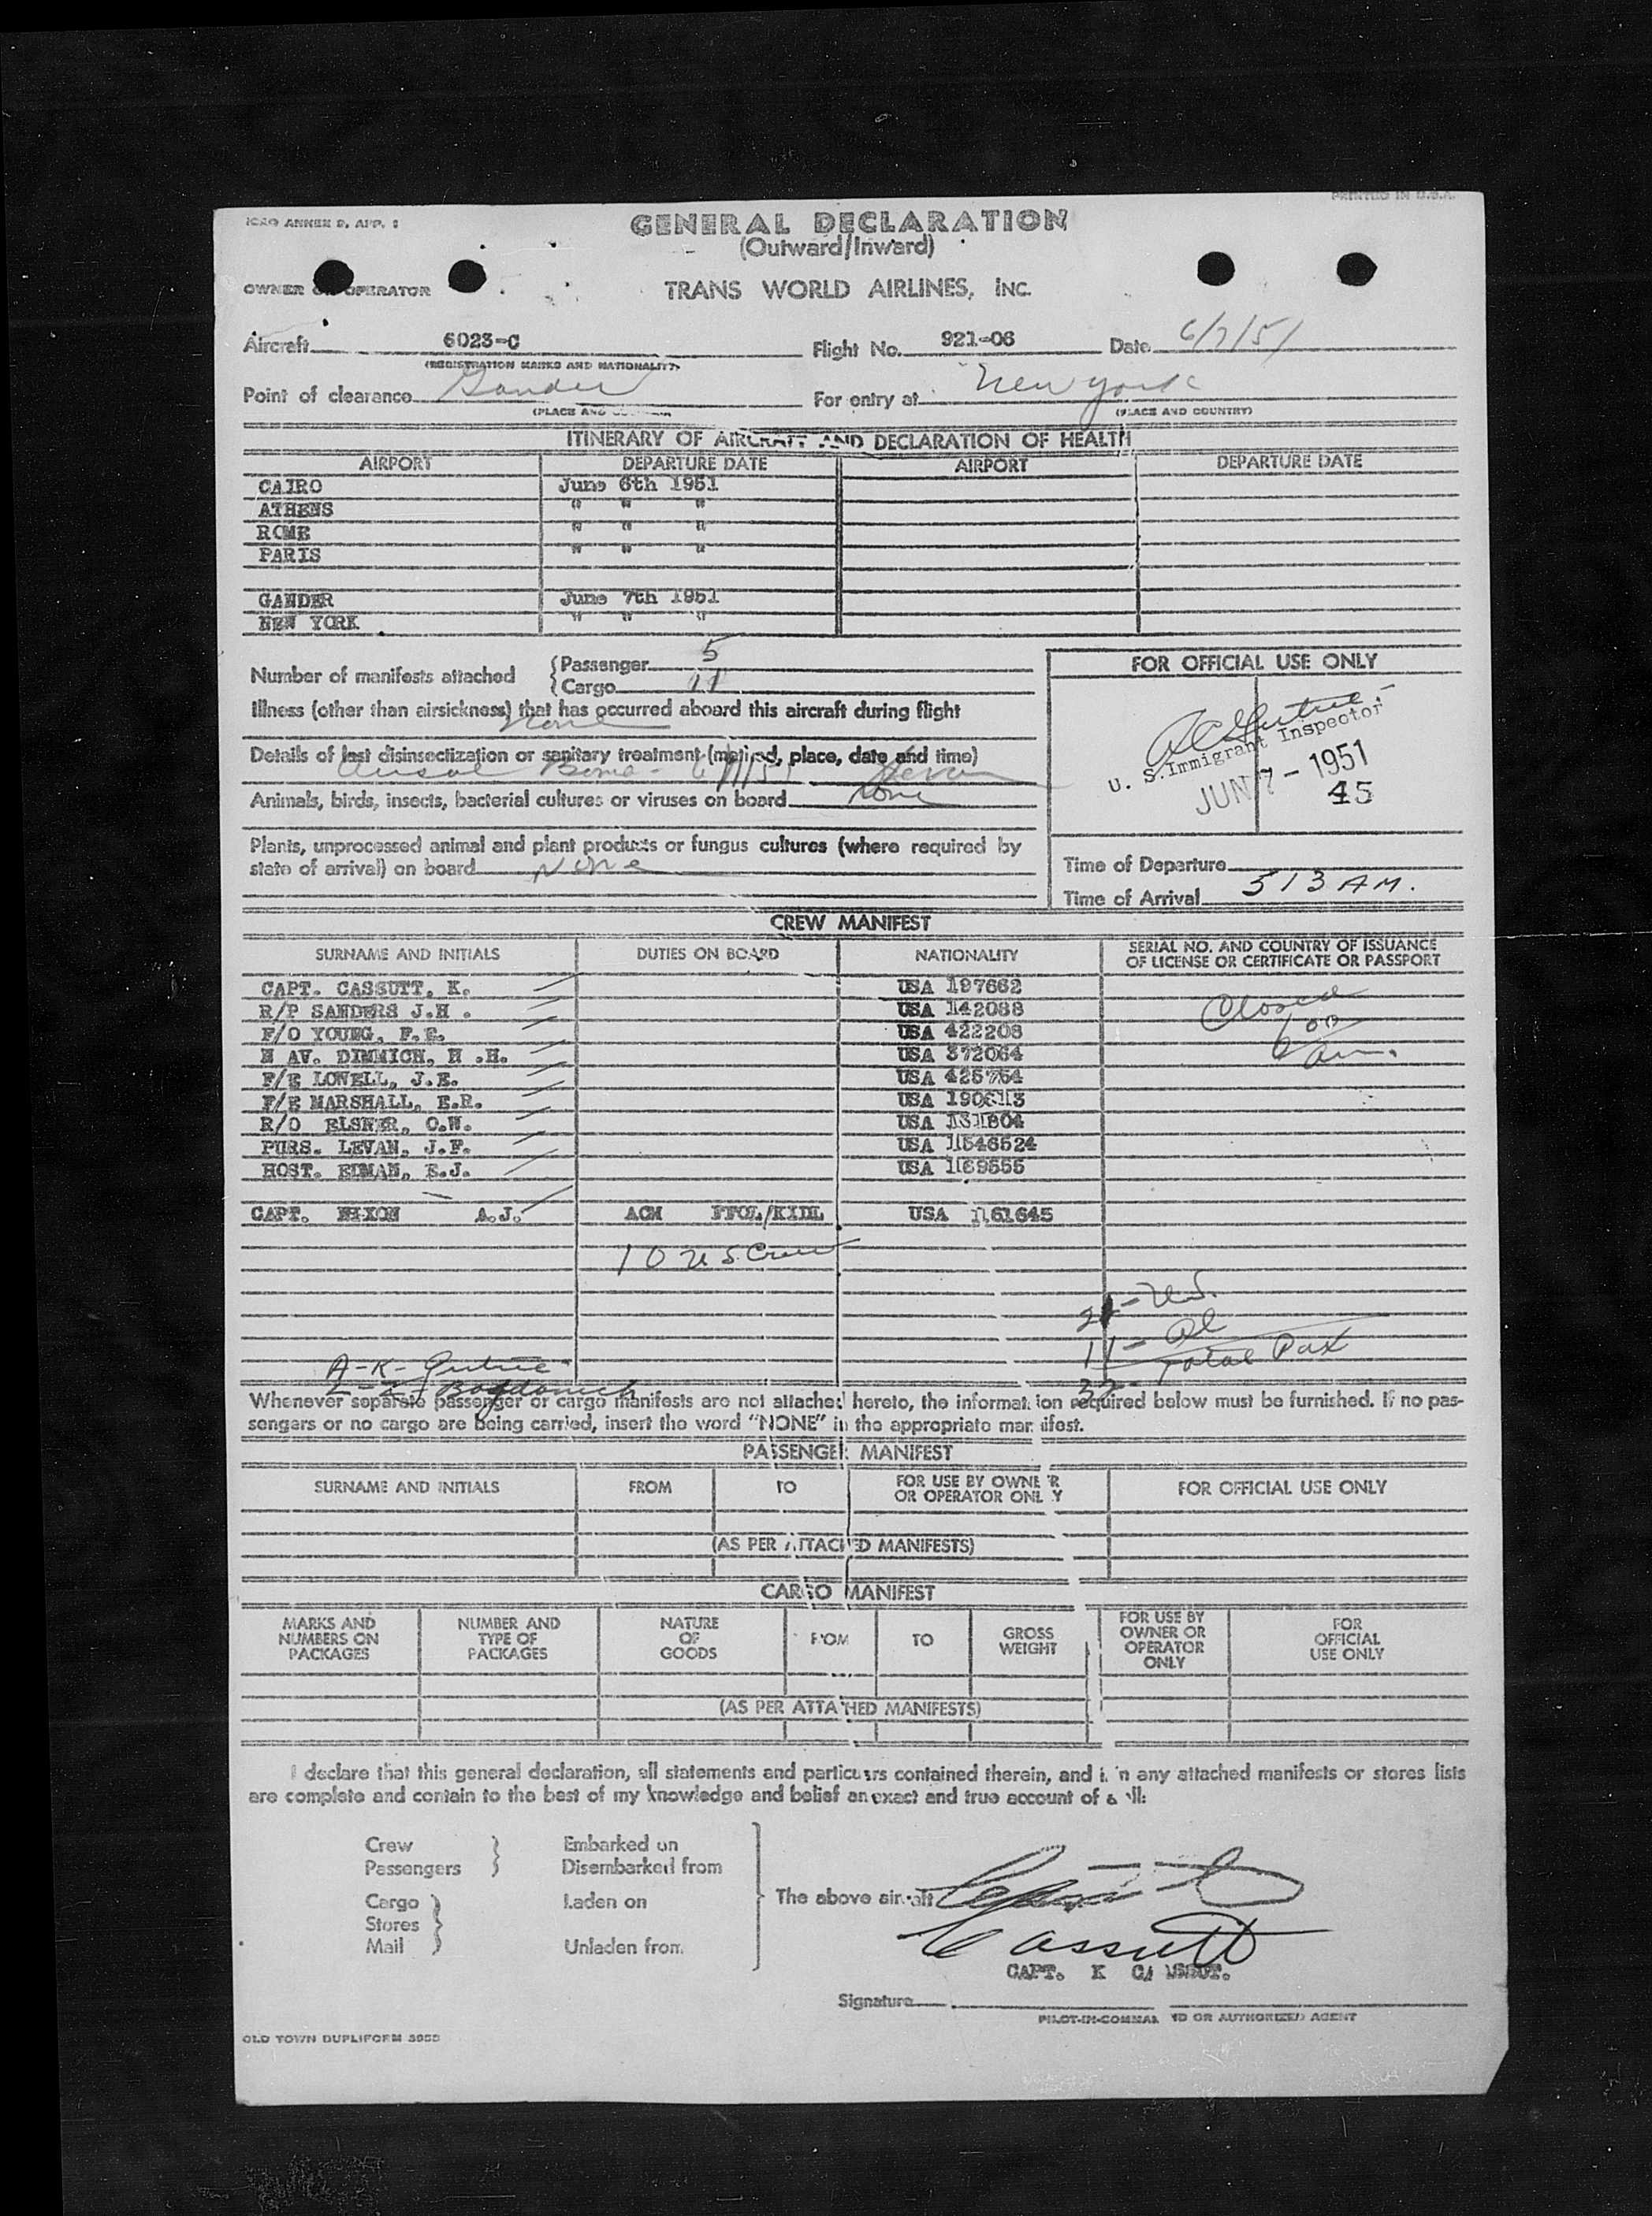 PRINTED IN U.S.A.
ICAO ANNEX 9, APP. 1
GENERAL DECLARATION
(Outward/Inward)
OWNER OR OPERATOR TRANS WORLD AIRLINES, INC.
Aircraft 6023-C Flight No. 921-06 Date 6/7/51
(REGISTRATION MARKS AND NATIONALITY)
Point of clearance Gander For entry at New York
(PLACE AND (PLACE AND COUNTRY)
ITINERARY OF AIRCRAFT AND DECLARATION OF HEALTH
AIRPORT DEPARTURE DATE AIRPORT DEPARTURE DATE
CAIRO June 6th 1951
ATHENS " " "
ROME " " "
PARIS " " "
GANDER June 7th 1951
NEW YORK " " "
Number of manifests attached { Passenger 5
{ Cargo 11
FOR OFFICIAL USE ONLY
Illness (other than airsickness) that has occurred aboard this aircraft during flight
None
U. S. Immigrant Inspector
JUN 7 - 1951
45
Details of last disinsectization or sanitary treatment (method, place, date and time)
Animals, birds, insects, bacterial cultures or viruses on board None
Plants, unprocessed animal and plant products or fungus cultures (where required by
state of arrival) on board None
Time of Departure
Time of Arrival 513 AM.
CREW MANIFEST
SURNAME AND INITIALS DUTIES ON BOARD NATIONALITY SERIAL NO. AND COUNTRY OF ISSUANCE
OF LICENSE OR CERTIFICATE OR PASSPORT
CAPT. CASSUTT, K. USA 197662
R/P SANDERS J.H . USA 142088
F/O YOUNG, F.E. USA 422208
N AV. DIMMICH, H .H. USA 372064
F/E LOWELL, J.E. USA 425764
F/E MARSHALL, E.R. USA
R/O ELSNER, O.W. USA
PURS. LEVAN, J.F. USA 1546524
HOST. EDMAN, E.J. USA
Closed
600
am.
CAPT. NIXON A.J. ACM USA 1161645
10 US Crew
21 - U.S.
11 - Al
32 - Total Pax
A-K- Gutrie
L-Z Bogdanich
Whenever separate passenger or cargo manifests are not attached hereto, the information required below must be furnished. If no pas-
sengers or no cargo are being carried, insert the word "NONE" in the appropriate manifest.
PASSENGER MANIFEST
SURNAME AND INITIALS FROM TO FOR USE BY OWNER
OR OPERATOR ONLY FOR OFFICIAL USE ONLY
(AS PER ATTACHED MANIFESTS)
CARGO MANIFEST
MARKS AND
NUMBERS ON
PACKAGES
NUMBER AND
TYPE OF
PACKAGES
NATURE
OF
GOODS
FROM
TO
GROSS
WEIGHT
FOR USE BY
OWNER OR
OPERATOR
ONLY
FOR
OFFICIAL
USE ONLY
(AS PER ATTACHED MANIFESTS)
I declare that this general declaration, all statements and particulars contained therein, and in any attached manifests or stores lists
are complete and contain to the best of my knowledge and belief an exact and true account of all:
Crew } Embarked on
Passengers } Disembarked from
Cargo } Laden on
Stores }
Mail } Unladen from
The above aircraft
Cassutt
CAPT. K CASSUT.
Signature
PILOT-IN-COMMAND OR AUTHORIZED AGENT
OLD TOWN DUPLIFORM